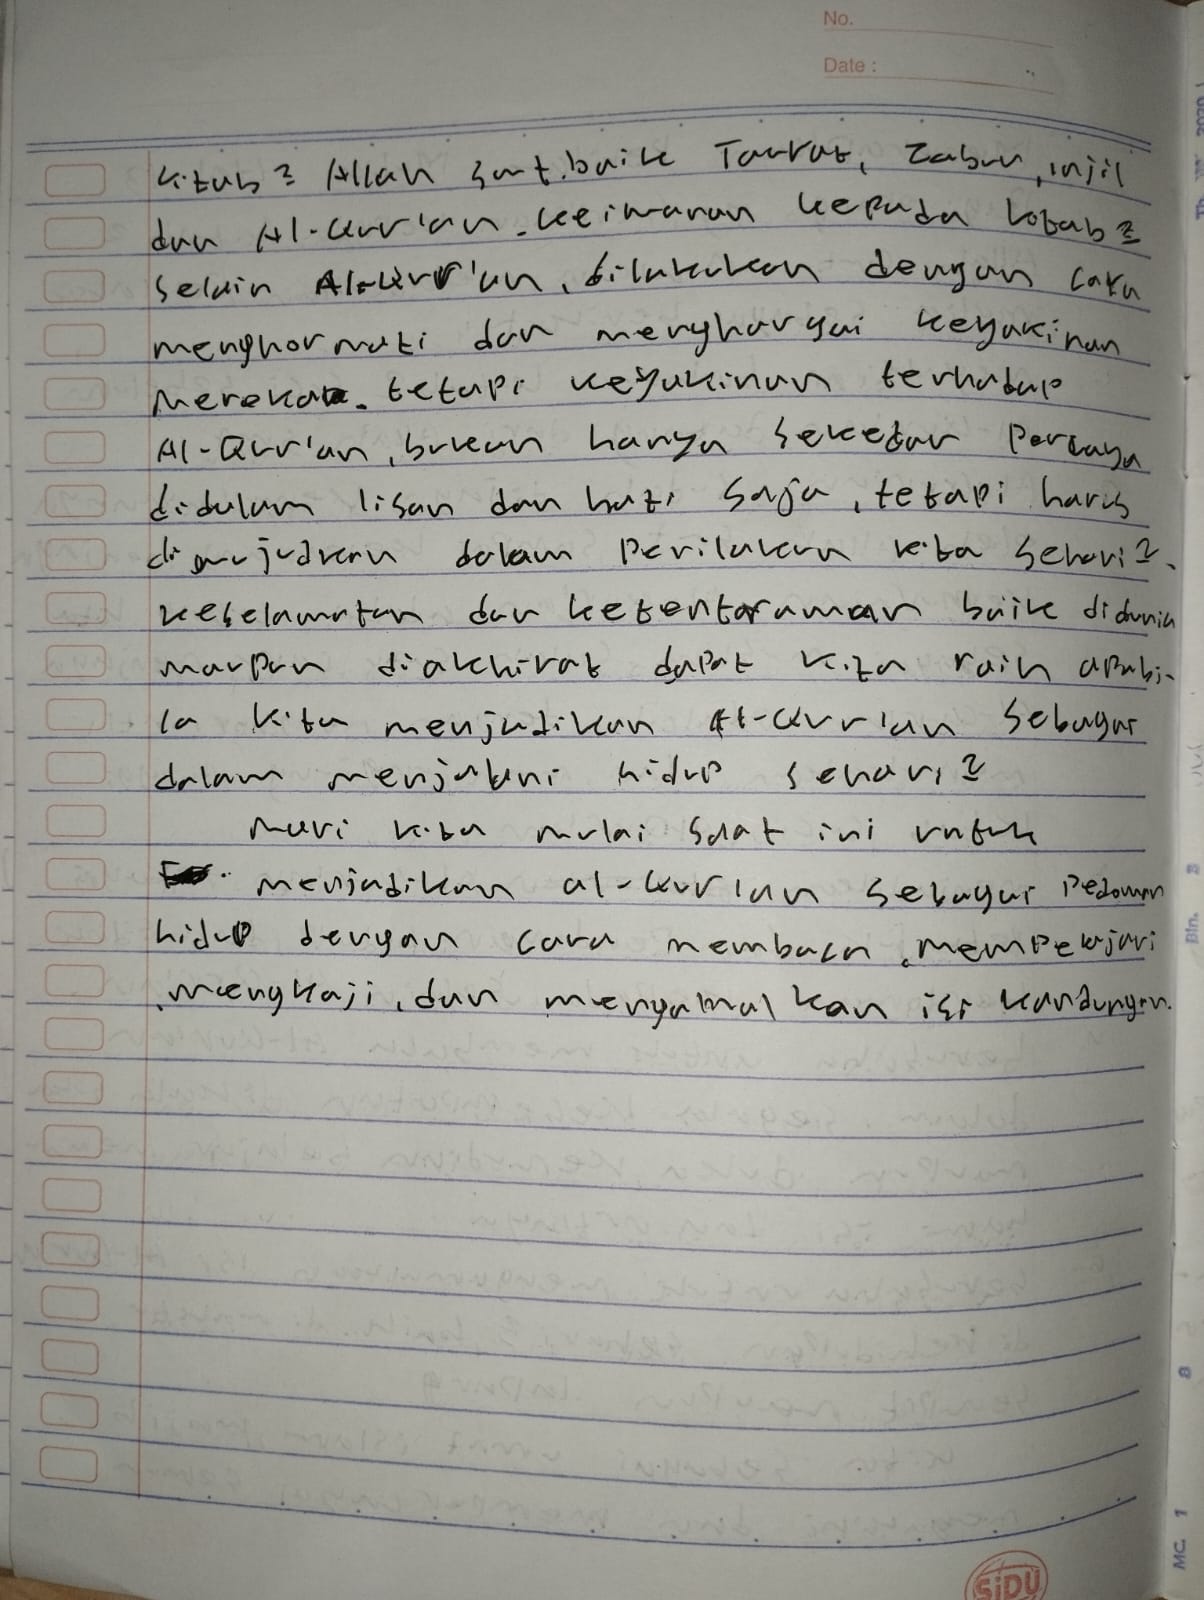 No.
Date :
kitab2 Allah swt. baik Taurat, Zabur, injil
dan Al-Qur'an. keimanan kepada kitab2
selain Al-Qur'an, dilakukan dengan cara
menghormati dan menghargai keyakinan
mereka. tetapi keyakinan terhadap
Al-Qur'an, bukan hanya sekedar percaya
didalam lisan dan hati saja, tetapi harus
diwujudkan dalam perilakun kita sehari2.
keselamatan dan ketentaraman baik didunia
maupun diakhirat dapat kita raih apabi-
la kita menjadikan Al-Qur'an sebagai
dalam menjalani hidup sehari2
Mari kita mulai saat ini untuk
menjadikan al-Qur'an sebagai pedoman
hidup dengan cara membaca, mempelajari
, mengkaji, dan mengamalkan isi kandungan.
SiDU
MC 1